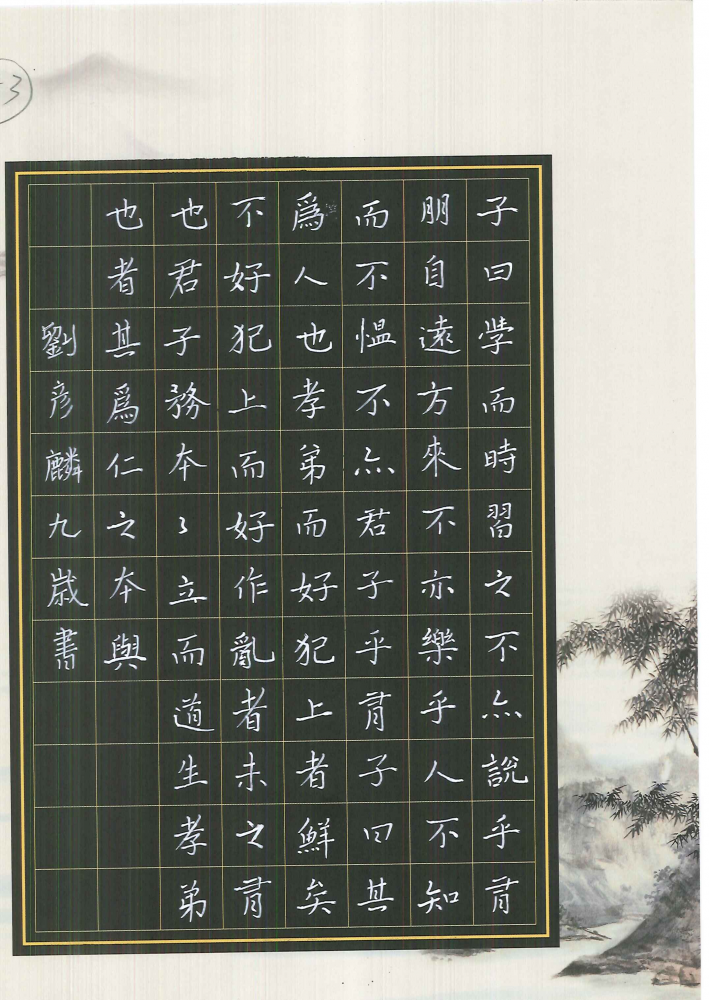 子曰學而時習之不亦說乎有
朋自遠方來不亦樂乎人不知
而不愠不亦君子乎有子曰其
爲人也孝弟而好犯上者鮮矣
不好犯上而好作亂者未之有
也君子務本〻立而道生孝弟
也者其爲仁之本與
劉彥麟九歲書